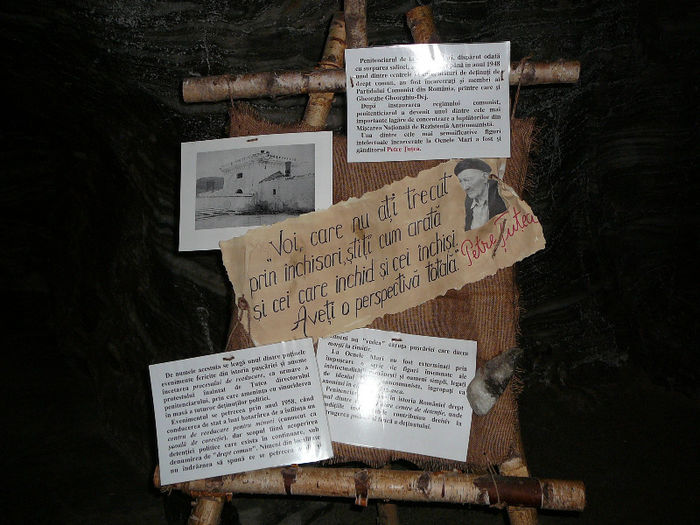 Penitenciarul de la dispărut odată
cu surparea salinei, până în anul 1948
unul dintre centrele de deținuți de
drept comun, au fost încarcerați și membri ai
Partidului Comunist din România, printre care și
Gheorghe Gheorghiu-Dej.
După instaurarea regimului comunist,
penitenciarul a devenit unul dintre cele mai
importante lagăre de concentrare a luptătorilor din
Mișcarea Națională de Rezistență Anticomunistă.
Una dintre cele mai semnificative figuri
intelectuale încarcerate la Ocnele Mari a fost și
gânditorul Petre Țuțea.
"Voi, care nu ați trecut
prin închisori, știți cum arată
și cei care închid și cei închiși.
Aveți o perspectivă totală."
Petre Țuțea
De numele acestuia se leagă unul dintre puținele
evenimente fericite din istoria pușcăriei și anume
încetarea procesului de reeducare, ca urmare a
protestului înaintat de Țuțea directorului
penitenciarului, prin care amenința cu sinuciderea
în masă a tuturor deținuților politici.
Evenimentul se petrecea prin anul 1958, când
conducerea de stat a luat hotărârea de a înființa un
centru de reeducare pentru minori (cunoscut ca
școală de corecție), dar scopul fiind acoperirea
detenției politice care exista în continuare, sub
denumirea de "drept comun". Nimeni din
nu îndrăznea să spună ce se petrecea
un "vodca" căruța pușcăriei care ducea
morții la cimitir.
La Ocnele Mari au fost exterminați prin
împușcare o serie de figuri însemnate ale
și oameni simpli, legați
de idealul anticomuniste, îngropați cu
în istoria României drept
unul dintre centre de detenție, unde
condițiile contribuiau decisiv la
a deținutului.